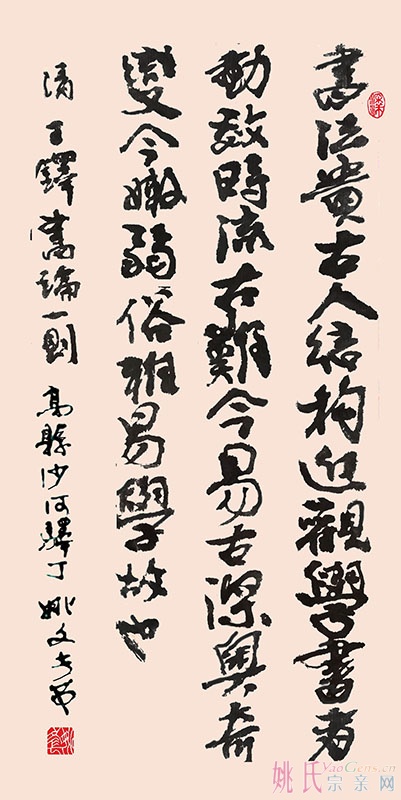 書法貴古人結构近觀學書者
動效時流古難今易古深奧奇
變今嫩弱俗稚易學故也
清王鐸書論一則 高縣沙河驛丁 姚文
YaoGens.cn
姚氏宗亲网